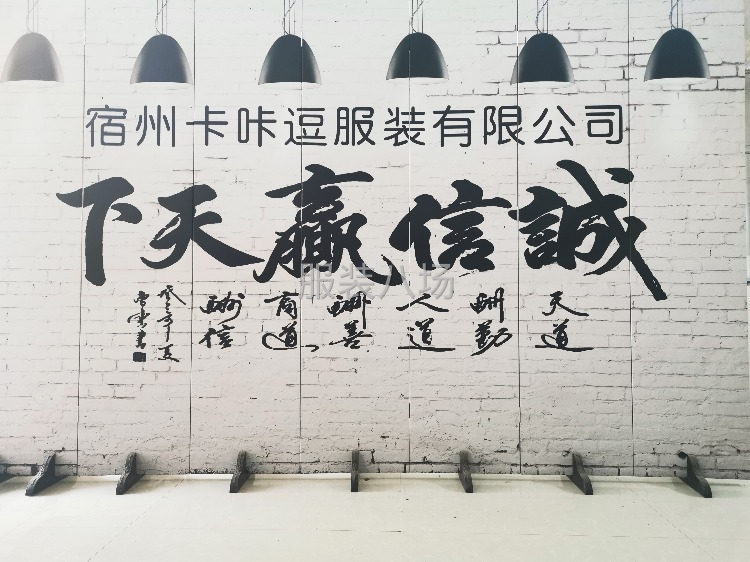 宿州卡咔逗服装有限公司
誠信赢天下
天道酬勤
人道酬善
商道酬信
服装八场